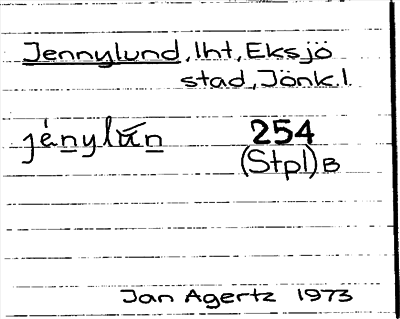 Jennylund, lht, Eksjö
stad, Jönk.l.
jényl​ún 254
(Stpl) B
Jan Agertz 1973